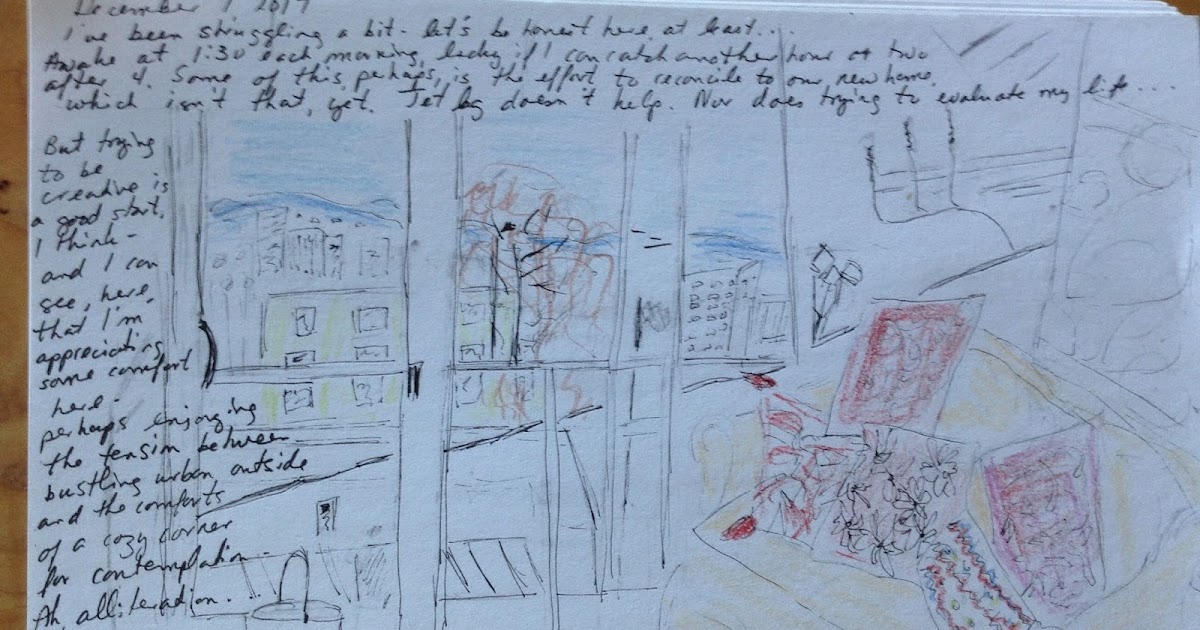 December 7 2017
I've been struggling a bit - let's be honest here, at least...
Awake at 1:30 each morning, lucky if I can catch another hour or two
after 4. Some of this, perhaps, is the effort to reconcile to our new home,
which isn't that, yet. Jet lag doesn't help. Nor does trying to evaluate my life...
But trying
to be
creative is
a good start,
I think -
and I can
see, here,
that I'm
appreciating
some comfort
here -
perhaps enjoying
the tension between
bustling urban outside
and the comforts
of a cozy corner
for contemplation -
Ah, alliteration..